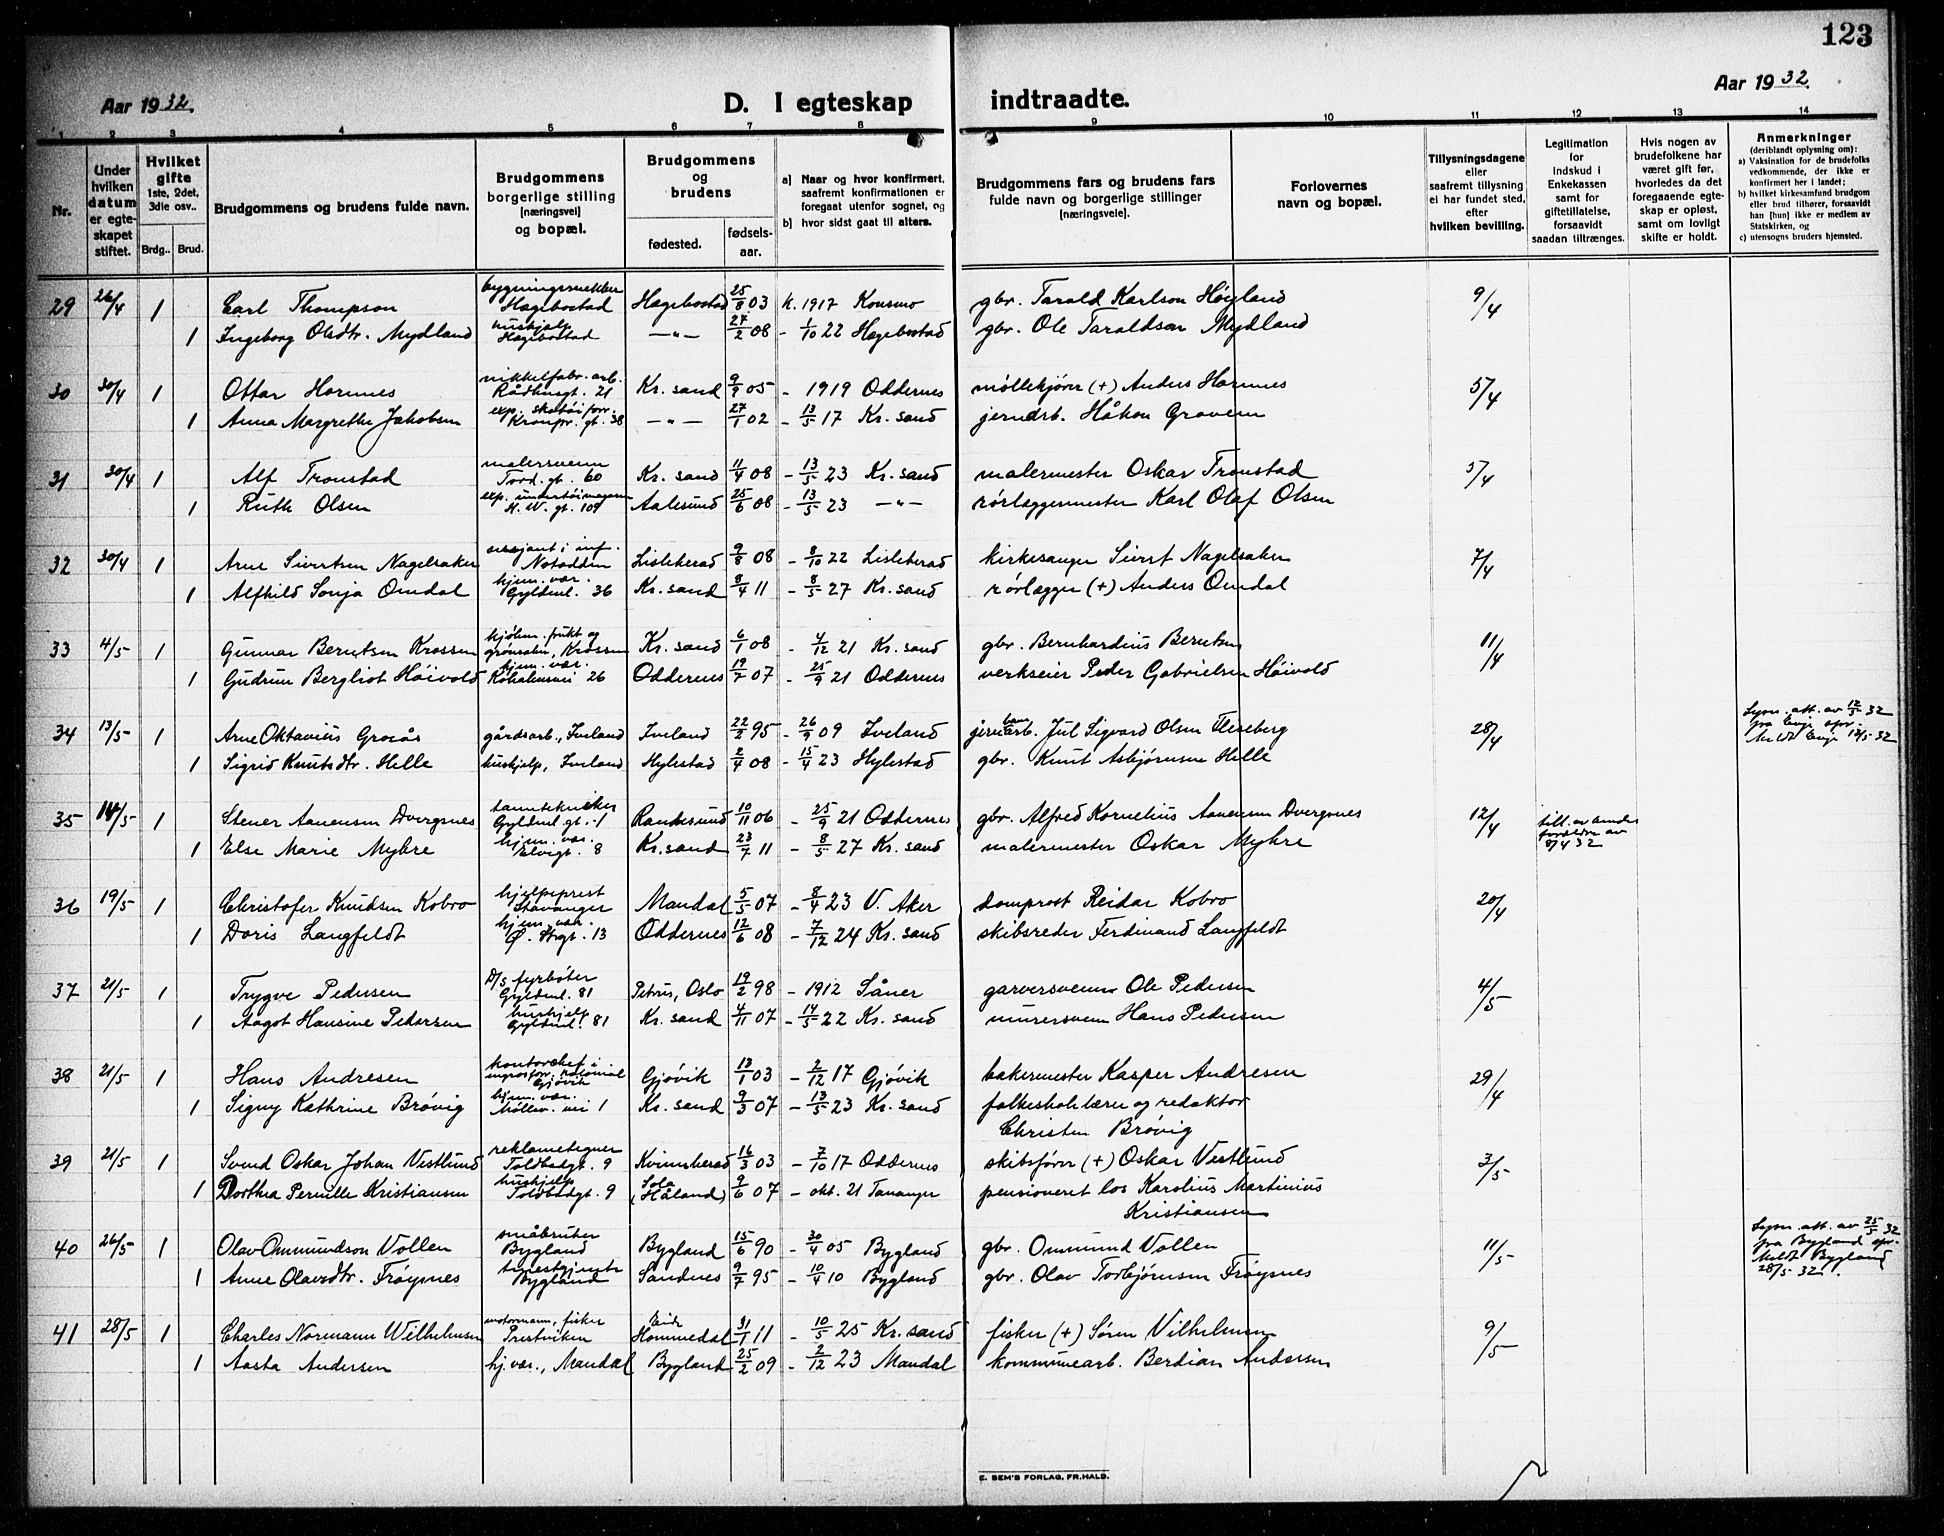 123
Aar 1932.
D. I egteskap
indtraadte.
Aar 1932.
1 2 3 4 5 6 7 8 9 10 11 12 13 14
Nr.
Under hvilken datum er egteskapet stiftet.
Hvilket gifte
1ste, 2det, 3die osv..
Brdg.. Brud.
Brudgommens og brudens fulde navn.
Brudgommens
borgerlige stilling
[næringsvei]
og bopæl.
Brudgommens
og
brudens
fødested.
fødsels-
aar.
a) Naar og hvor konfirmert,
saafremt konfirmationen er
foregaat utenfor sognet, og
b) hvor sidst gaat til alters.
Brudgommens fars og brudens fars
fulde navn og borgerlige stillinger
[næringsveie].
Forlovernes
navn og bopæl.
Tillysningsdagene
eller
saafremt tillysning
ei har fundet sted,
efter
hvilken bevilling.
Legitimation
for
Indskud i
Enkekassen
samt for
giftetillatelse,
forsaavidt
saadan tiltrænges.
Hvis nogen av
brudefolkene har
været gift før,
hvorledes da det
foregaaende egte-
skap er opløst,
samt om lovligt
skifte er holdt.
Anmerkninger
(deriblandt oplysning om):
a) Vaksination for de brudefolks
vedkommende, der ikke er
konfirmert her i landet;
b) hvilket kirkesamfund brudgom
eller brud tilhører, forsaavidt
han [hun] ikke er medlem av
Statskirken, og
c) utensogns bruders hjemsted.
29 26/4 1 Carl Thompson Hægebostad Hægebostad 25/8 03 k. 1917 Konsmo gbr. Tarald Karlson Høyland 9/4
1 Ingeborg Olsdtr. Mydland hushjelp Hægebostad —„— 27/2 08 - 1/10 22 Hægebostad gbr. Ole Taraldsen Mydland
30 30/4 1 Ottar Homnes nikkelfabr. arb. Rådhusgt. 21 Kr. sand 9/9 05 - 1919 Oddernes møllekjører (+) Anders Homnes 5/4
1 Anna Margrethe Jakobsen exp. skotøiforr. Kronpr. gt. 38 —„— 27/1 02 - 13/5 17 Kr. sand jernarb. Håkon Gravem
31 30/4 1 Alf Tronstad malersvenn Tord. gt. 60 Kr. sand 11/4 08 - 13/5 23 Kr. sand malermester Oskar Tronstad 5/4
1 Ruth Olsen H. W. gt. 109 Aalesund 25/6 08 - 13/5 23 —„— rørlæggermester Karl Olaf Olsen
32 30/4 1 Arne Sivertsen Nagelsaker sersjant i inf. Notodden Lisleherad 9/8 08 - 8/10 22 Lisleherad kirkesanger Sivert Nagelsaker 7/4
1 Alfhild Sonja Omdal hjem. vær. Gyldenl. 36 Kr. sand 8/4 11 - 8/5 27 Kr. sand rørlægger (+) Anders Omdal
33 4/5 1 Gunnar Berntsen Krossen kjøbm. frukt og grønsaker, Krossen Kr. sand 6/1 08 - 4/12 21 Kr. sand gbr. Bernhardius Berntsen 11/4
1 Gudrun Bergliot Høivold hjem. vær. 26 Oddernes 19/7 07 - 25/9 21 Oddernes verkseier Peder Gabrielsen Høivold
34 13/5 1 Arne Oktavius Grosås gårdsarb., Iveland Iveland 22/2 95 - 26/9 09 Iveland jernbanearb. Jul Sigvard Olsen 28/4 Lysn. att. av 12/5 32
fra Evje opr.
Meldt Evje 13/5 32
1 Sigrid Knutsdtr. Helle hushjelp, Iveland Hylestad 2/4 08 - 15/4 23 Hylestad gbr. Knut Asbjørnsen Helle
35 14/5 1 Stener Aanensen Dvergsnes tanntekniker Gyldenl. gt. 1 Randesund 10/11 06 - 25/9 21 Oddernes gbr. Alfred Kornelius Aanensen Dvergsnes 12/4 till. av brudens
foreldre av
8/4 32
1 Else Marie Myhre hjem. vær. Elvegt. 8 Kr. sand 23/7 11 - 8/5 27 Kr. sand malermester Oskar Myhre
36 19/5 1 Christofer Knudsen Kobro hjelpeprest Stavanger Mandal 5/5 07 - 8/4 23 V. Aker domprost Reidar Kobro 20/4
1 Doris Langfeldt hjem. vær. Ø. Strgt. 13 Oddernes 12/6 08 - 7/12 24 Kr. sand skibsreder Ferdinand Langfeldt
37 21/5 1 Trygve Pedersen D/s fyrbøter Gyldenl. 81 Petrus, Oslo 19/2 98 - 1912 Såner garversvenn Ole Pedersen 4/5
1 Aagot Hansine Pedersen hushjelp Gyldenl. 81 Kr. sand 4/11 07 - 14/5 22 Kr. sand murersvenn Hans Pedersen
38 21/5 1 Hans Andresen kontorchef i engrosforr. kolonial Gjøvik Gjøvik 13/1 03 - 2/12 17 Gjøvik bakermester Kasper Andresen 29/4
1 Signy Kathrine Brøvig hjem. vær. Møllev. vei 1 Kr. sand 9/3 07 - 13/5 23 Kr. sand folkeskolelærer og redaktør
Christen Brøvig
39 21/5 1 Svend Oskar Johan Vestlund reklametegner Toldbodgt. 9 Kvinnherad 16/3 03 - 7/10 17 Oddernes skibsfører (+) Oskar Vestlund 3/5
1 Dorthea Pernille Kristiansen hushjelp Toldbodgt. 9 Sola (Håland) 9/6 07 - okt. 21 Tananger pensioneret los Karolius Martinius
Kristiansen
40 26/5 1 Olav Ommundson Vollen småbruker Bygland Bygland 15/6 90 - 30/4 05 Bygland gbr. Ommund Vollen 11/5 Lysn. att. av 25/5 32
fra Bygland opr.
Meldt Bygland
28/5 32.
1 Anne Olavsdtr. Frøysnes Bygland Sandnes 9/7 95 - 10/4 10 Bygland gbr. Olav Torbjørnsen Frøysnes
41 28/5 1 Charles Normann Wilhelmsen motormann, fisker Prestviken Eide Hommedal 31/1 11 - 10/5 25 Kr. sand fisker (+) Søren Vilhelmsen 9/5
1 Aasta Andersen hj. vær., Mandal Bygland 25/2 09 - 2/12 23 Mandal kommunearb. Berdian Andersen
E. SEM'S FORLAG, FR.HALD.